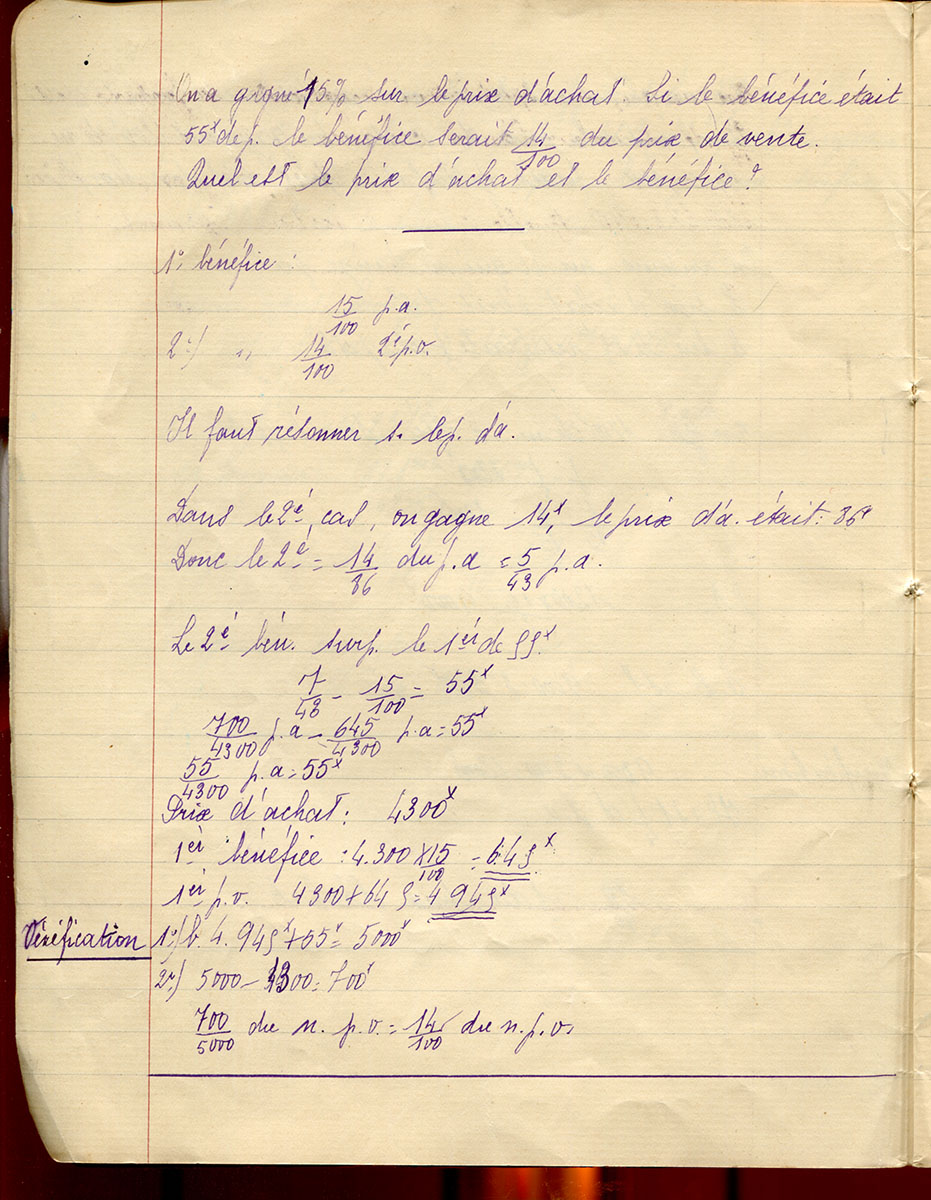 On a gagné 15% sur le prix d'achat. Si le bénéfice était
55ᶠ de p. le bénéfice serait 14/100 du prix de vente.
Quel est le prix d'achat et le bénéfice?
1º, bénéfice :
15/100 p.a.
2º) " 14/100 2è p.v.
Il faut résonner s. le p. d'a.
Dans le 2è cas, on gagne 14ᶠ, le prix d'a. était: 86ᶠ
Donc le 2è = 14/86 du p.a = 5/43 p.a.
Le 2è bén. surp. le 1er de 55ᶠ
7/43 - 15/100 = 55ᶠ
700/4300 p.a - 645/4300 p.a = 55ᶠ
55/4300 p.a = 55ᶠ
Prix d'achat: 4300ᶠ
1er bénéfice : 4.300 x 15/100 = 645ᶠ
1er p.v. 4300 + 645 = 4945ᶠ
Vérification 1º) b. 4.945ᶠ + 55ᶠ = 5000ᶠ
2º) 5000 - 4300 = 700ᶠ
700/5000 du n. p.v. = 14/100 du n. p. v.